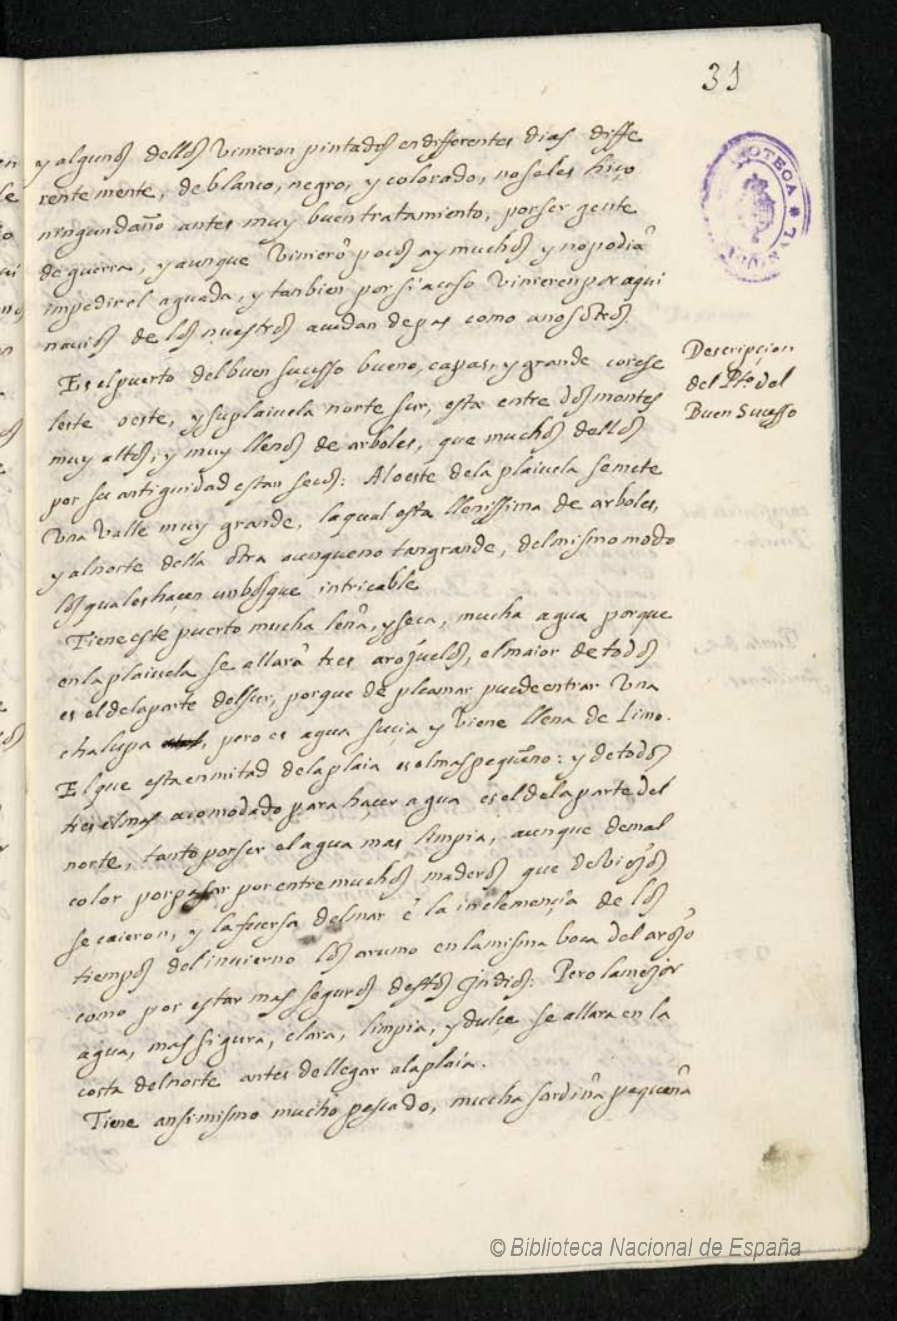 31
y algunos dellos vinieron pintados en differentes dias diffe
rentemente, de blanco, negro, y colorado, no se les hiço
ningun daño antes muy buen tratamiento, por ser gente
de guerra, y aunque vinierõ pocos ay muchos y no podiã
impedir el aguada, y tanbien por si acaso vinieren por aqui
nauios de los nuestros acudan de pas como a nosotros.
Es el puerto del buen sucesso bueno, capas, y grande corese
leste oeste, y su plaiuela norte sur, esta entre dos montes
muy altos, y muy llenos de arboles, que muchos dellos
por su antiguidad estan secos: Al oeste de la plaiuela se mete
vna valle muy grande, la qual esta llenissima de arboles,
y al norte della otra aunque no tan grande, del mismo modo
los quales haçen un bosque intricable
Tiene este puerto mucha leña, y seca, mucha agua porque
en la plaiuela se allarã tres aroyuelos, el maior de todos
es el de la parte del sur, porque de pleamar puede entrar vna
chalupa, pero es agua suçia y viene llena de limo.
El que esta en mitad de la plaia es el mas pequeño: y de todos
tres el mas acomodado para haçer agua es el de la parte del
norte, tanto por ser el agua mas limpia, aunque de mal
color por pasar por entre muchos maderos que de viejos
se caieron, y la fuersa del mar é la inclemençia de los
tiempos del inuierno los arumo en la misma boca del aroyo
como por estar mas seguros destos Jndios: Pero la mejor
agua, mas sigura, clara, limpia, y dulce se allara en la
costa del norte antes de llegar a la plaia.
Tiene ansi mismo mucho pescado, mucha sardina pequeña
Descripçion
del Pto. del
Buen Sucesso
© Biblioteca Nacional de España